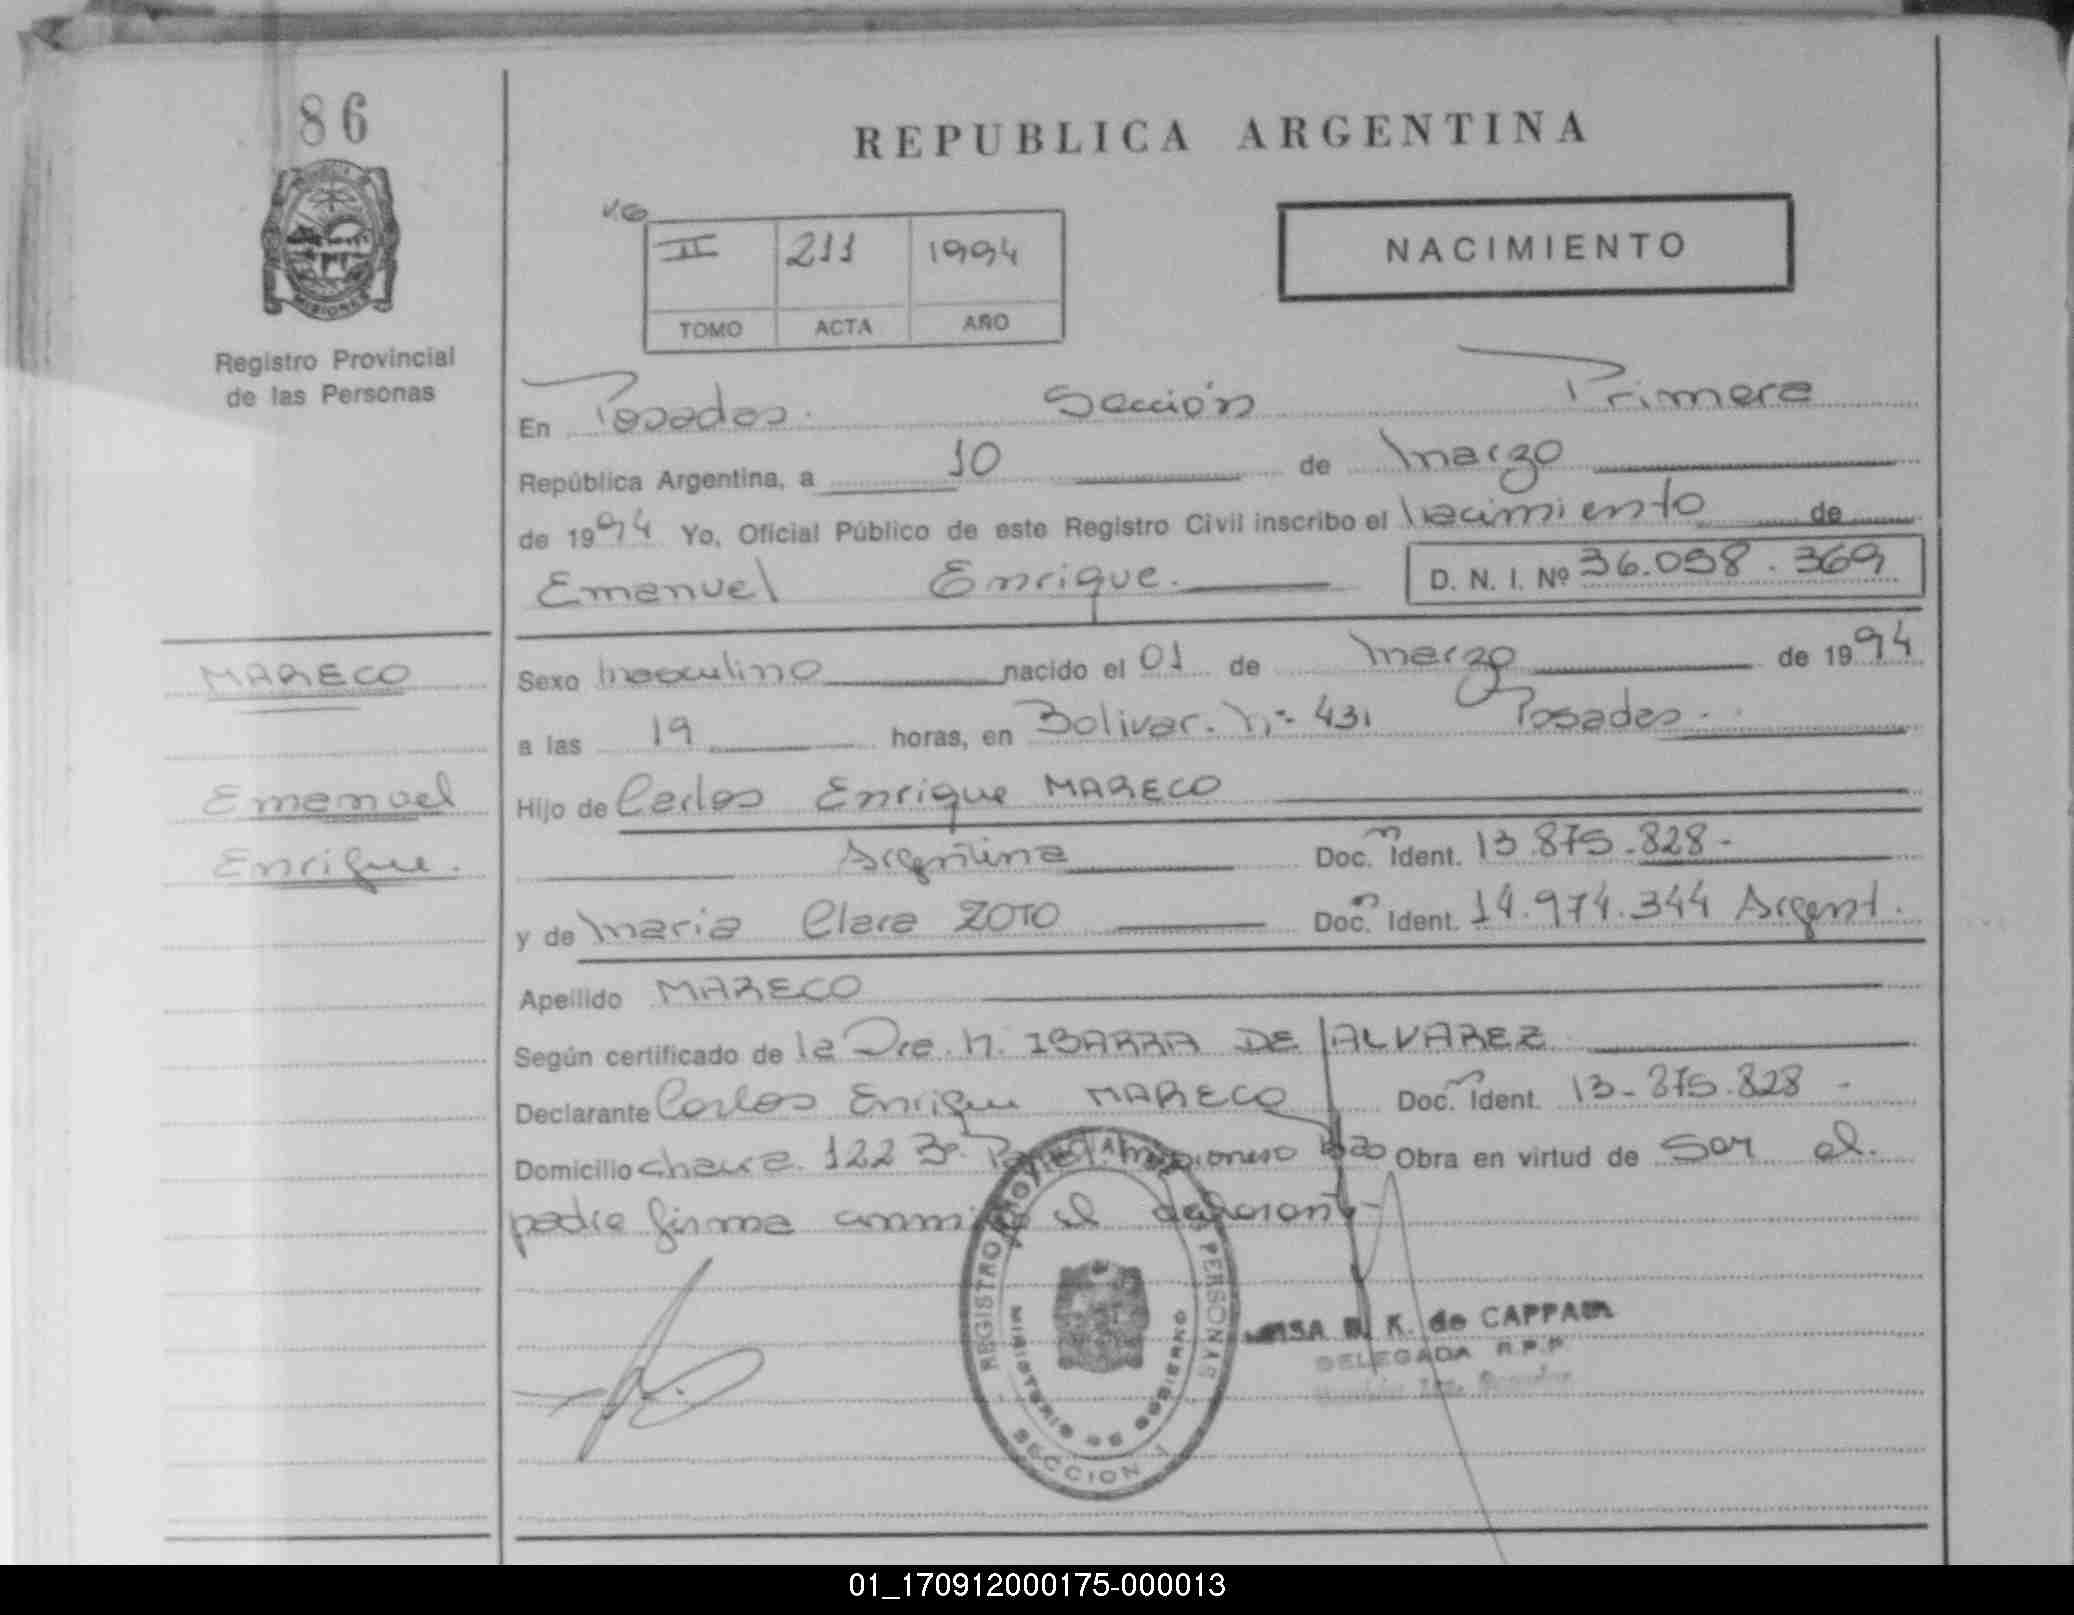 86
REPUBLICA ARGENTINA
MISIONES
Registro Provincial
de las Personas
II 211 1994
TOMO ACTA AÑO
NACIMIENTO
En Posadas. Sección Primera
República Argentina, a 10 de Marzo
de 1994 Yo, Oficial Público de este Registro Civil inscribo el Nacimiento de
Emanuel Enrique. D. N. I. Nº 36.098.369
MARECO
Sexo Masculino nacido el 01 de Marzo de 1994
a las 19 horas, en Bolivar. Nº 431 Posadas.
Emanuel
Hijo de Carlos Enrique MARECO
Enrique.
Argentina Doc. Ident. 13.875.828-
y de Maria Clara ZOTO Doc. Ident. 14.974.344 Argent.
Apellido MARECO
Según certificado de la Dra. N. IBARRA DE ALVAREZ
Declarante Carlos Enrique MARECO Doc. Ident. 13-875.828-
Domicilio chacra 122 Obra en virtud de Ser el
padre firma el
REGISTRO PERSONAS
MINISTERIO DE GOBIERNO
SECCION
K. de CAPPA
DELEGADA R.P.P.
01_170912000175-000013